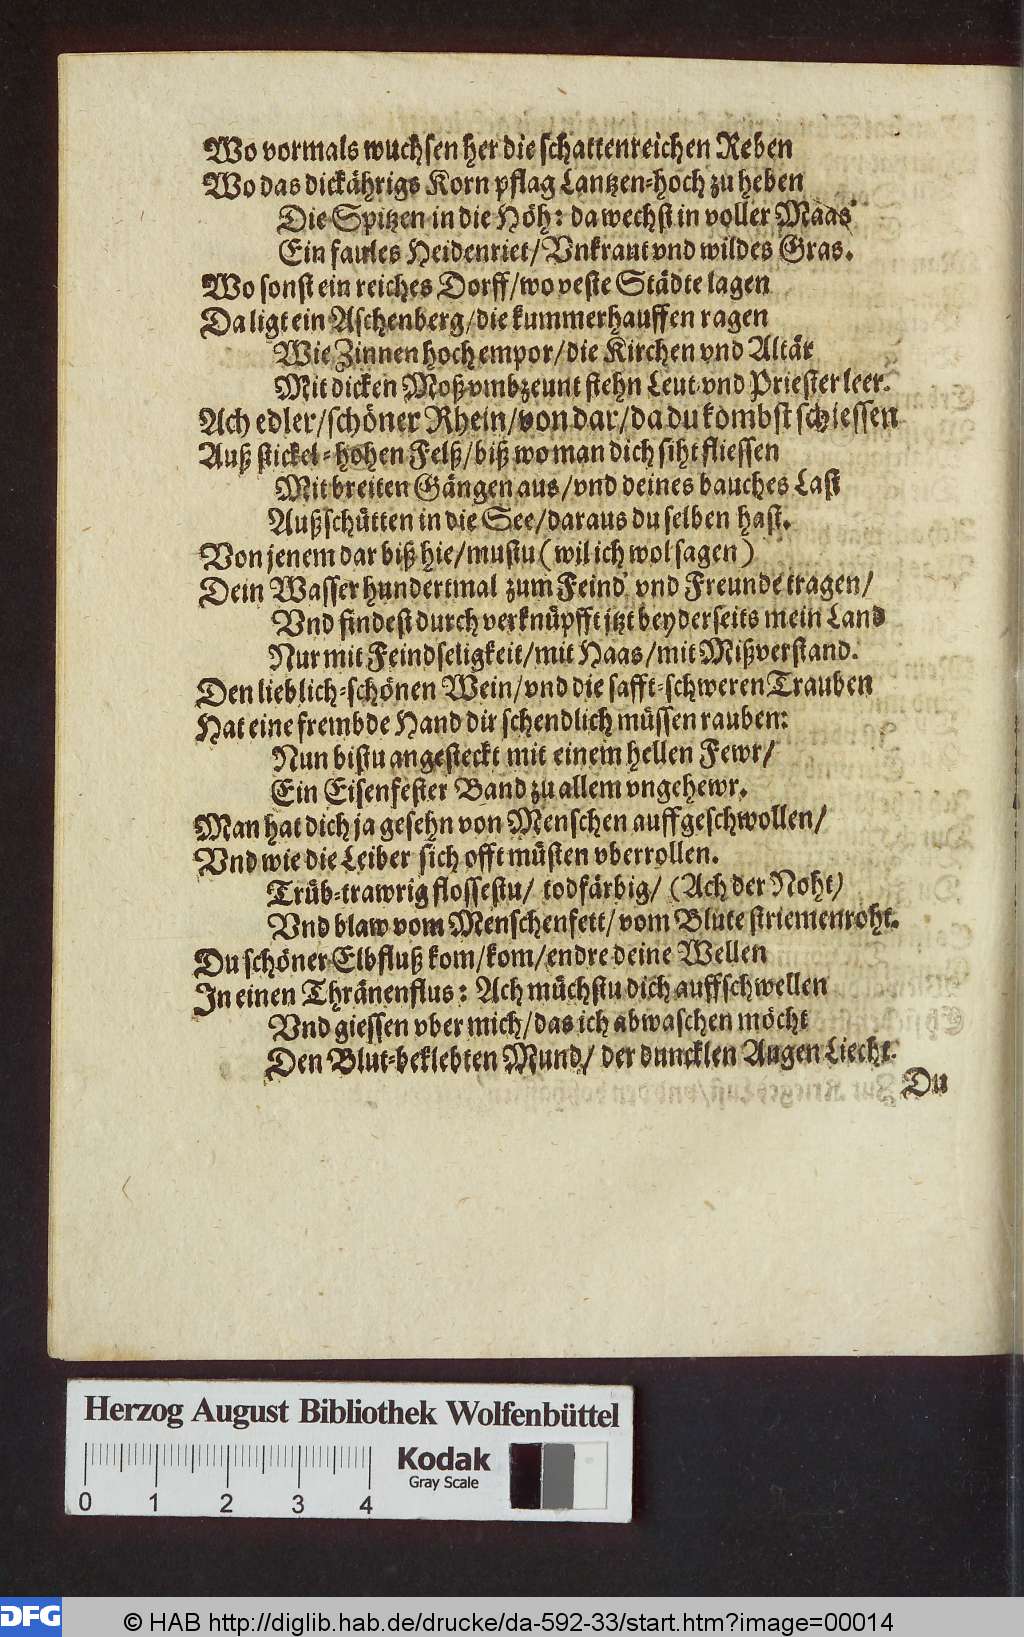 Wo vormals wuchsen her die schattenreichen Reben
Wo das dickährigs Korn pflag Lantzen-hoch zu heben
Die Spitzen in die Höh: da wechst in voller Maas
Ein faules Heidenriet/ Vnkraut vnd wildes Gras.
Wo sonst ein reiches Dorff/ wo veste Städte lagen
Da ligt ein Aschenberg/ die kummerhauffen ragen
Wie Zinnen hoch empor/ die Kirchen vnd Altär
Mit dicken Moß vmbzeunt stehn Leut vnd Priester leer.
Ach edler/ schöner Rhein/ von dar/ da du kombst schiessen
Auß stickel-hohen Felß/ biß wo man dich siht fliessen
Mit breiten Gängen aus/ vnd deines bauches Last
Außschütten in die See/ daraus du selben hast.
Von jenem dar biß hie/ mustu (wil ich wol sagen)
Dein Wasser hundertmal zum Feind vnd Freunde tragen/
Vnd findest durch verknüpfft jtzt beyderseits mein Land
Nur mit Feindseligkeit/ mit Haas/ mit Mißverstand.
Den lieblich-schönen Wein/ vnd die safft-schweren Trauben
Hat eine frembde Hand dir schendlich müssen rauben:
Nun bistu angesteckt mit einem hellen Fewr/
Ein Eisenfester Band zu allem vngehewr.
Man hat dich ja gesehn von Menschen auffgeschwollen/
Vnd wie die Leiber sich offt müsten vberrollen.
Trüb-trawrig flossestu/ todfärbig/ (Ach der Noht)
Vnd blaw vom Menschenfett/ vom Blute striemenroht.
Du schöner Elbfluß kom/ kom/ endre deine Wellen
In einen Thränenflus: Ach müchstu dich auffschwellen
Vnd giessen vber mich/ das ich abwaschen möcht
Den Blut-beklebten Mund/ der duncklen Augen Liecht.
Du
Herzog August Bibliothek Wolfenbüttel
Kodak
Gray Scale
0 1 2 3 4
DFG
© HAB http://diglib.hab.de/drucke/da-592-33/start.htm?image=00014